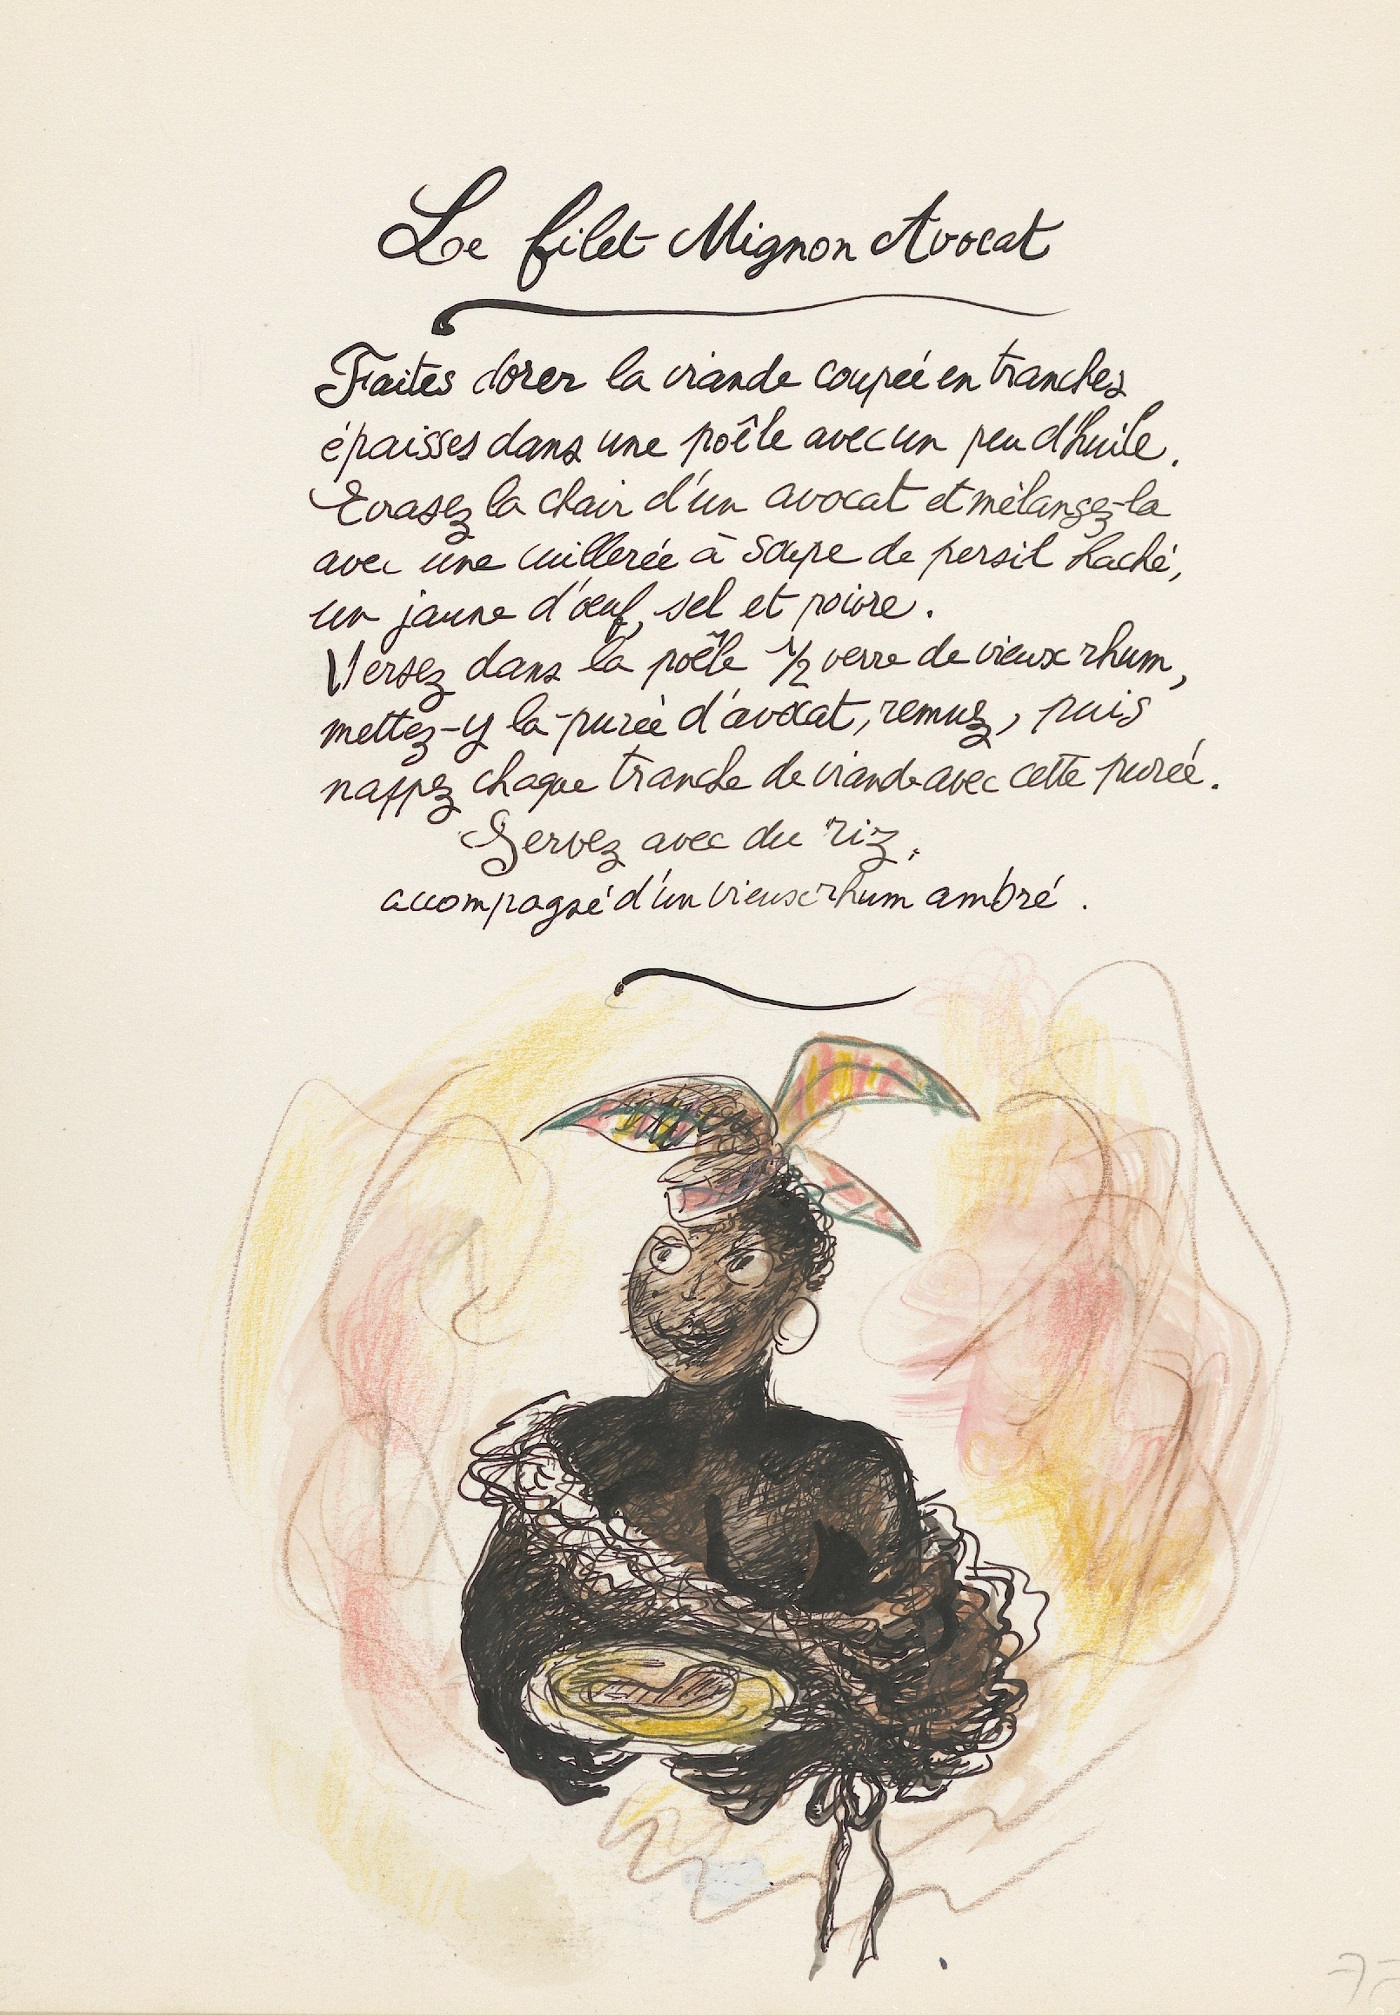 Le filet Mignon Avocat
Faites dorer la viande coupée en tranches
épaisses dans une poêle avec un peu d'huile.
Ecrasez la chair d'un avocat et mélangez-la
avec une cuillerée à soupe de persil haché,
un jaune d'œuf, sel et poivre.
Versez dans la poêle 1/2 verre de vieux rhum,
mettez-y la purée d'avocat, remuez, puis
nappez chaque tranche de viande avec cette purée.
Servez avec du riz,
accompagné d'un vieux rhum ambré.